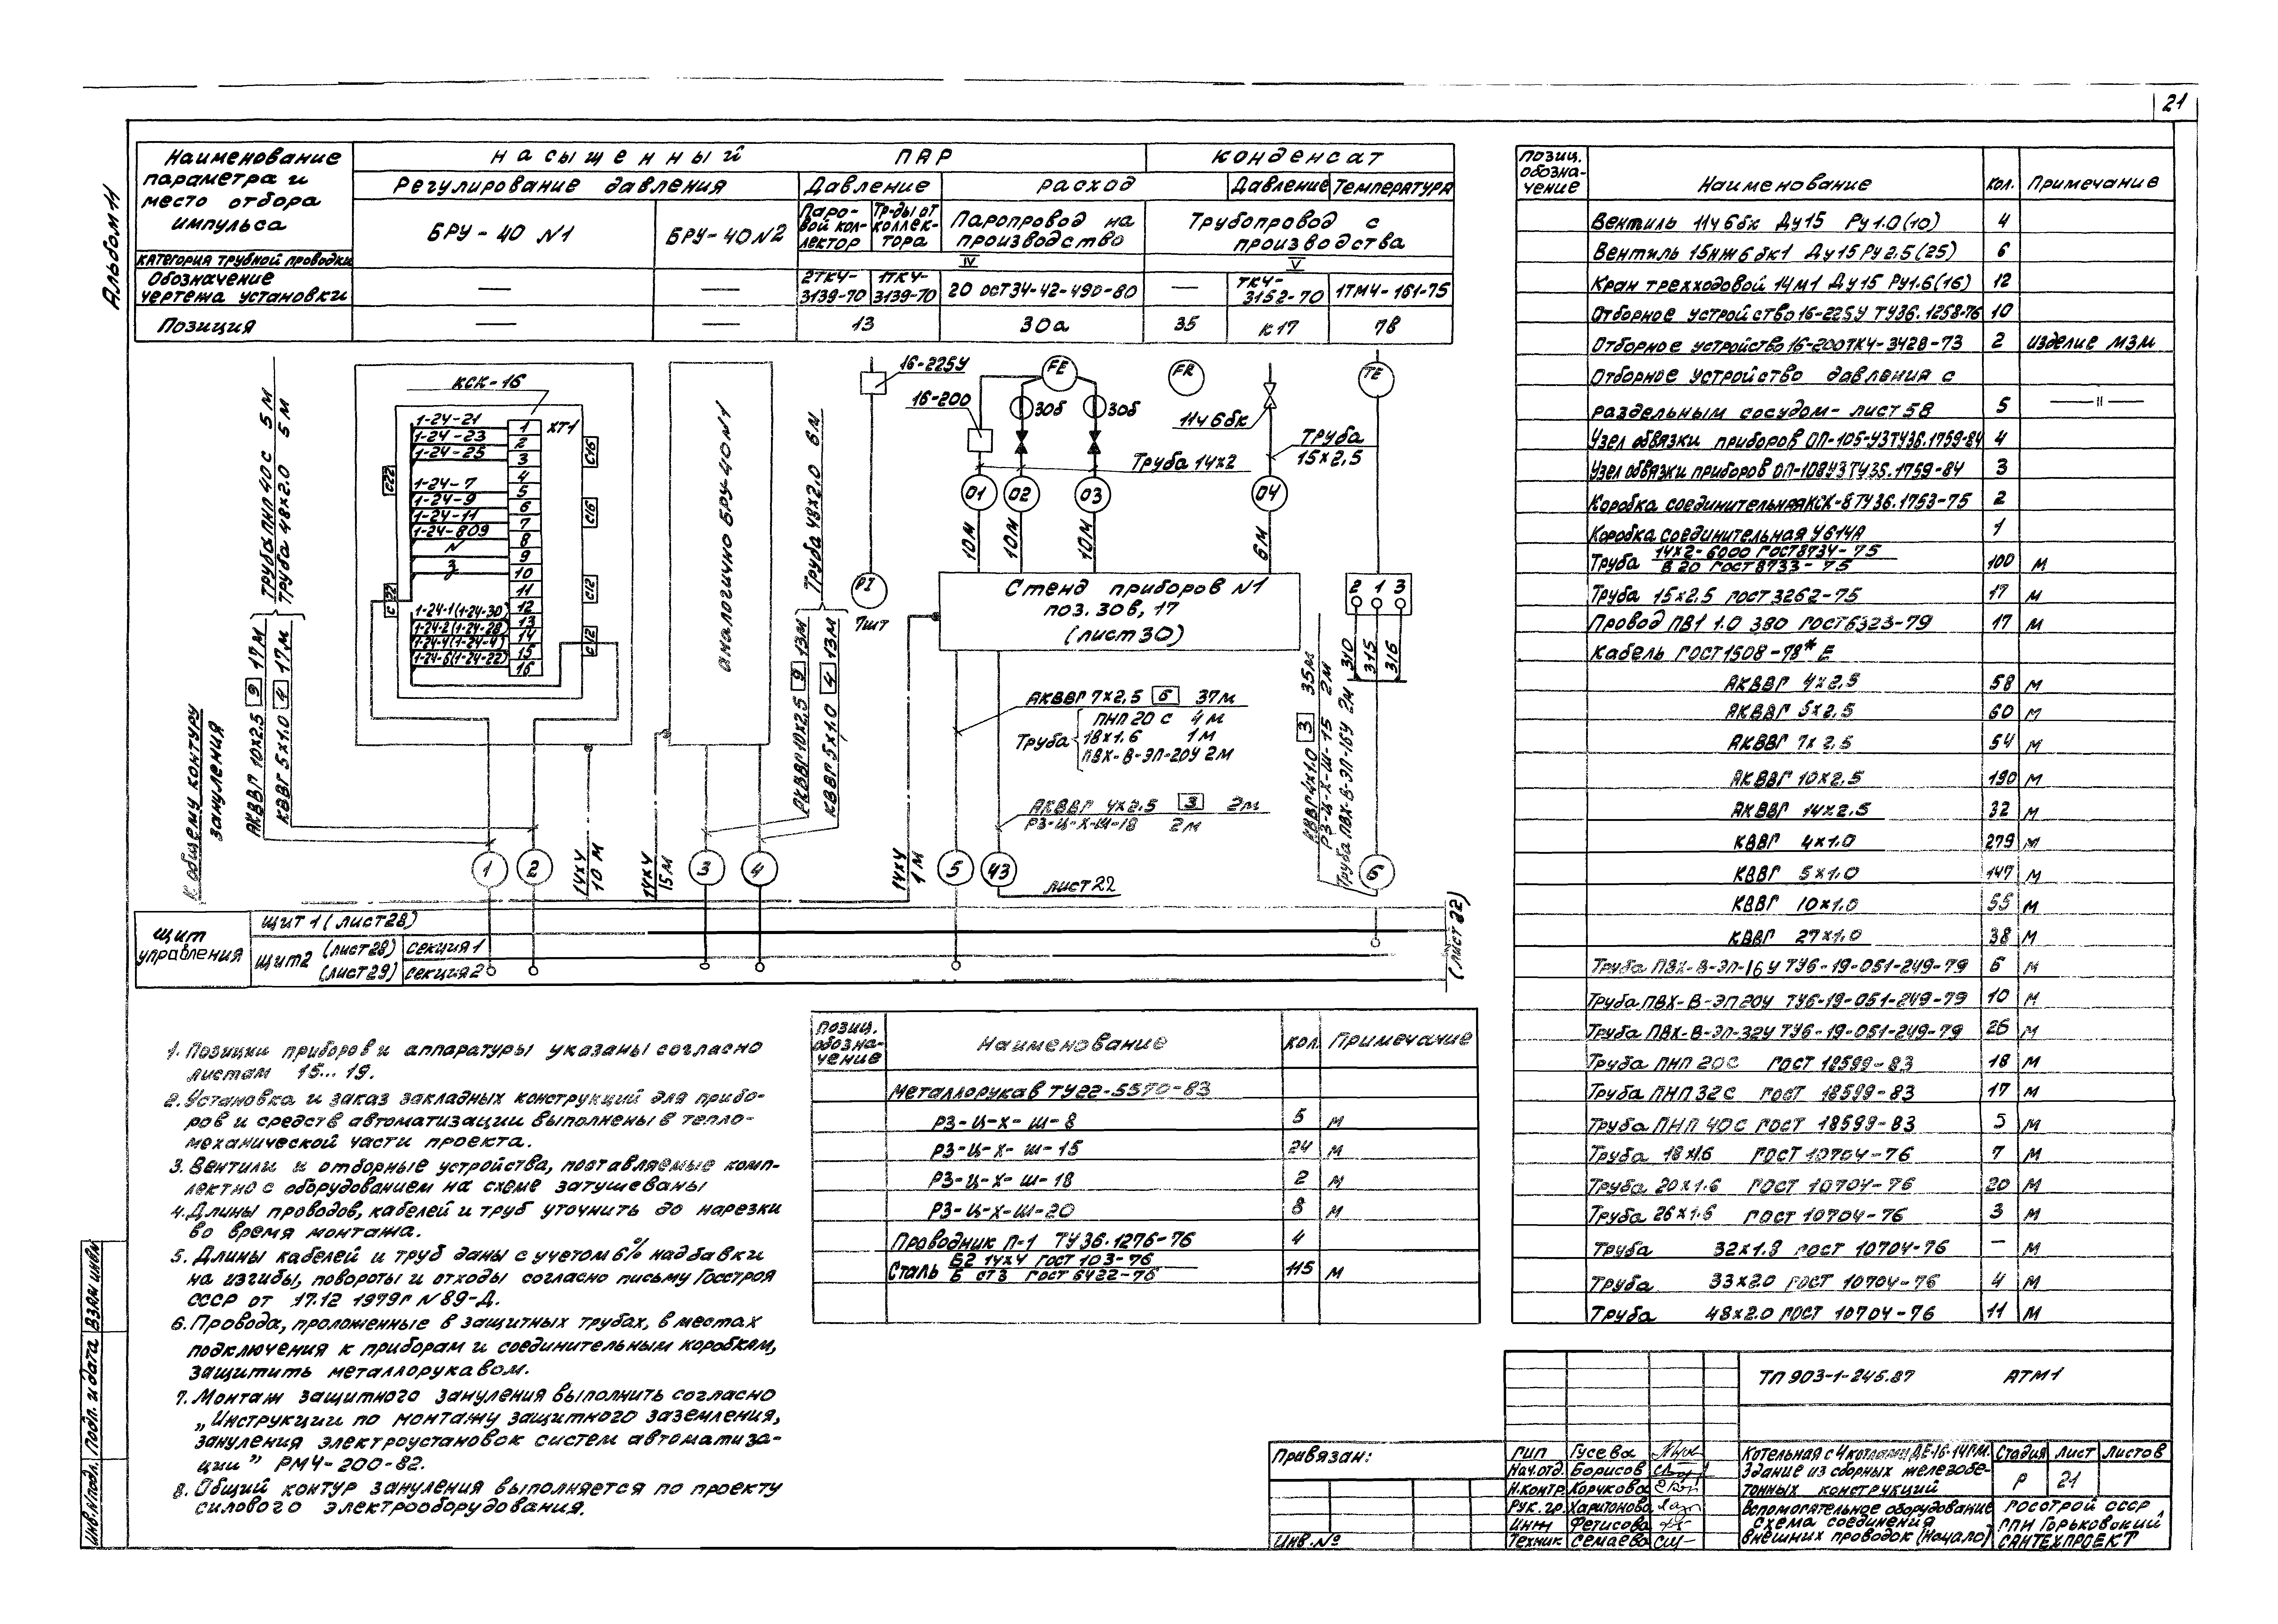 21
Альбом 11
Наименование параметра и место отбора импульса
насыщенный пар
конденсат
Регулирование давления
Давление
расход
Давление
Температура
БРУ-40 №1
БРУ-40 №2
Паровой коллектор
Тр-ды от коллектора
Паропровод на производство
Трубопровод с производства
категория трубной проводки
IV
V
Обозначение чертежа установки
—
—
2ТК4-3139-70
1ТК4-3139-70
20 ОСТ34-42-490-80
—
ТК4-3152-70
1ТМ4-161-75
Позиция
—
—
13
30а
35
К17
7в
КСК-16
ХТ1
1-24-21
1-24-23
1-24-25
1-24-7
1-24-9
1-24-11
1-24-809
N
З
1-24-1(1-24-30)
1-24-2(1-24-28)
1-24-4(1-24-4)
1-24-6(1-24-22)
1
2
3
4
5
6
7
8
9
10
11
12
13
14
15
16
С22
С22
С16
С16
С12
С12
Труба ПНП 40С 5м
Труба 48х2.0 5м
АКВВГ 10х2.5 9 17м
КВВГ 5х1.0 4 17м
К общему контуру зануления
аналогично БРУ-40 №1
Труба 48х2.0 6м
АКВВГ 10х2.5 9 13м
КВВГ 5х1.0 4 13м
16-225У
16-200
PI
7шт
FE
30б
30б
FR
TE
11ч6бк
Труба 14х2
Труба 15х2,5
01
02
03
04
10м
10м
10м
6м
Стенд приборов №1
поз. 30в, 17
(лист 30)
2 1 3
310
315
316
АКВВГ 7х2,5 6 37м
Труба
ПНП 20 С 4м
18х1.6 1м
ПВХ-В-ЭП-20У 2м
АКВВГ 4х2.5 3 2м
РЗ-Ц-Х-Ш-18 2м
КВВГ 4х1.0 3 35м
РЗ-Ц-Х-Ш-15 2м
Труба ПВХ-В-ЭП-16У 2м
1
2
3
4
5
43
6
14х4 10м
14х4 15м
14х4 1м
лист 22
(лист 22)
Щит управления
Щит 1 (лист 28)
Щит 2
(лист 28)
секция 1
(лист 29)
секция 2
1. Позиции приборов и аппаратуры указаны согласно
листам 15...19.
2. Установка и заказ закладных конструкций для прибо-
ров и средств автоматизации выполнены в тепло-
механической части проекта.
3. Вентили и отборные устройства, поставляемые комп-
лектно с оборудованием на схеме затушеваны
4. Длины проводов, кабелей и труб уточнить до нарезки
во время монтажа.
5. Длины кабелей и труб даны с учетом 6% надбавки
на изгибы, повороты и отходы согласно письму Госстроя
СССР от 17.12 1979г №89-Д.
6. Провода, проложенные в защитных трубах, в местах
подключения к приборам и соединительным коробкам,
защитить металлорукавом.
7. Монтаж защитного зануления выполнить согласно
„Инструкции по монтажу защитного заземления,
зануления электроустановок систем автоматиза-
ции” РМ4-200-82.
8. Общий контур зануления выполняется по проекту
силового электрооборудования.
Позиц. обозначение
Наименование
кол.
Примечание
Металлорукав ТУ22-5570-83
РЗ-Ц-Х-Ш-8 5 м
РЗ-Ц-Х-Ш-15 24 м
РЗ-Ц-Х-Ш-18 2 м
РЗ-Ц-Х-Ш-20 8 м
Проводник П-1 ТУ36.1276-76 4
Сталь Б2 14х4 ГОСТ 103-76 115 м
Б СТ3 ГОСТ 6422-76
Позиц. обозна-чение
Наименование
кол.
Примечание
Вентиль 11ч6бк Ду15 Ру1.0(10) 4
Вентиль 15нж6бк1 Ду15 Ру2.5(25) 6
Кран трехходовой 14м1 Ду15 Ру1.6(16) 12
Отборное устройство 16-225У ТУ36.1258-76 10
Отборное устройство 16-200ТК4-3428-73 2 изделие МЗМ
Отборное устройство давления с
раздельным сосудом- лист 58 5 —"—
Узел обвязки приборов ОП-105-У3ТУ36.1759-84 4
Узел обвязки приборов ОП-108У3ТУ35.1759-84 3
Коробка соединительная КСК-8 ТУ36.1753-75 2
Коробка соединительная У614А 1
Труба 14х2-6000 ГОСТ8734-75 100 м
В 20 ГОСТ8733-75
Труба 15х2,5 ГОСТ 3262-75 17 м
Провод ПВ1 1.0 380 ГОСТ6323-79 17 м
Кабель ГОСТ1508-78* Е
АКВВГ 4х2.5 58 м
АКВВГ 5х2.5 60 м
АКВВГ 7х2.5 54 м
АКВВГ 10х2.5 190 м
АКВВГ 14х2.5 32 м
КВВГ 4х1.0 279 м
КВВГ 5х1.0 147 м
КВВГ 10х1.0 55 м
КВВГ 27х1.0 38 м
Труба ПВХ-В-ЭП-16У ТУ6-19-051-249-79 6 м
Труба ПВХ-В-ЭП20У ТУ6-19-051-249-79 10 м
Труба ПВХ-В-ЭП-32У ТУ6-19-051-249-79 26 м
Труба ПНП 20С ГОСТ 18599-83 18 м
Труба ПНП 32С ГОСТ 18599-83 17 м
Труба ПНП 40С ГОСТ 18599-83 5 м
Труба 18х1.6 ГОСТ 10704-76 7 м
Труба 20х1.6 ГОСТ 10704-76 20 м
Труба 26х1.6 ГОСТ 10704-76 3 м
Труба 32х1.8 ГОСТ 10704-76 — м
Труба 33х2.0 ГОСТ 10704-76 4 м
Труба 48х2.0 ГОСТ 10704-76 11 м
ТП 903-1-245.87 АТМ1
Привязан:
Инв.№
ГИП Гусева
Нач.отд. Борисов
Н.контр. Корчкова
Рук.гр. Харитонова
Инж Фетисова
Техник Семаева
Котельная с 4 котлами ДЕ-16-14ГМ.
Здание из сборных железобе-
тонных конструкций
Стадия Лист Листов
Р 21
Вспомогательное оборудование
схема соединения
внешних проводок (Начало)
Госстрой СССР
ГПИ Горьковский
САНТЕХПРОЕКТ
Инв.№подл.
Подп. и дата
Взам инв№